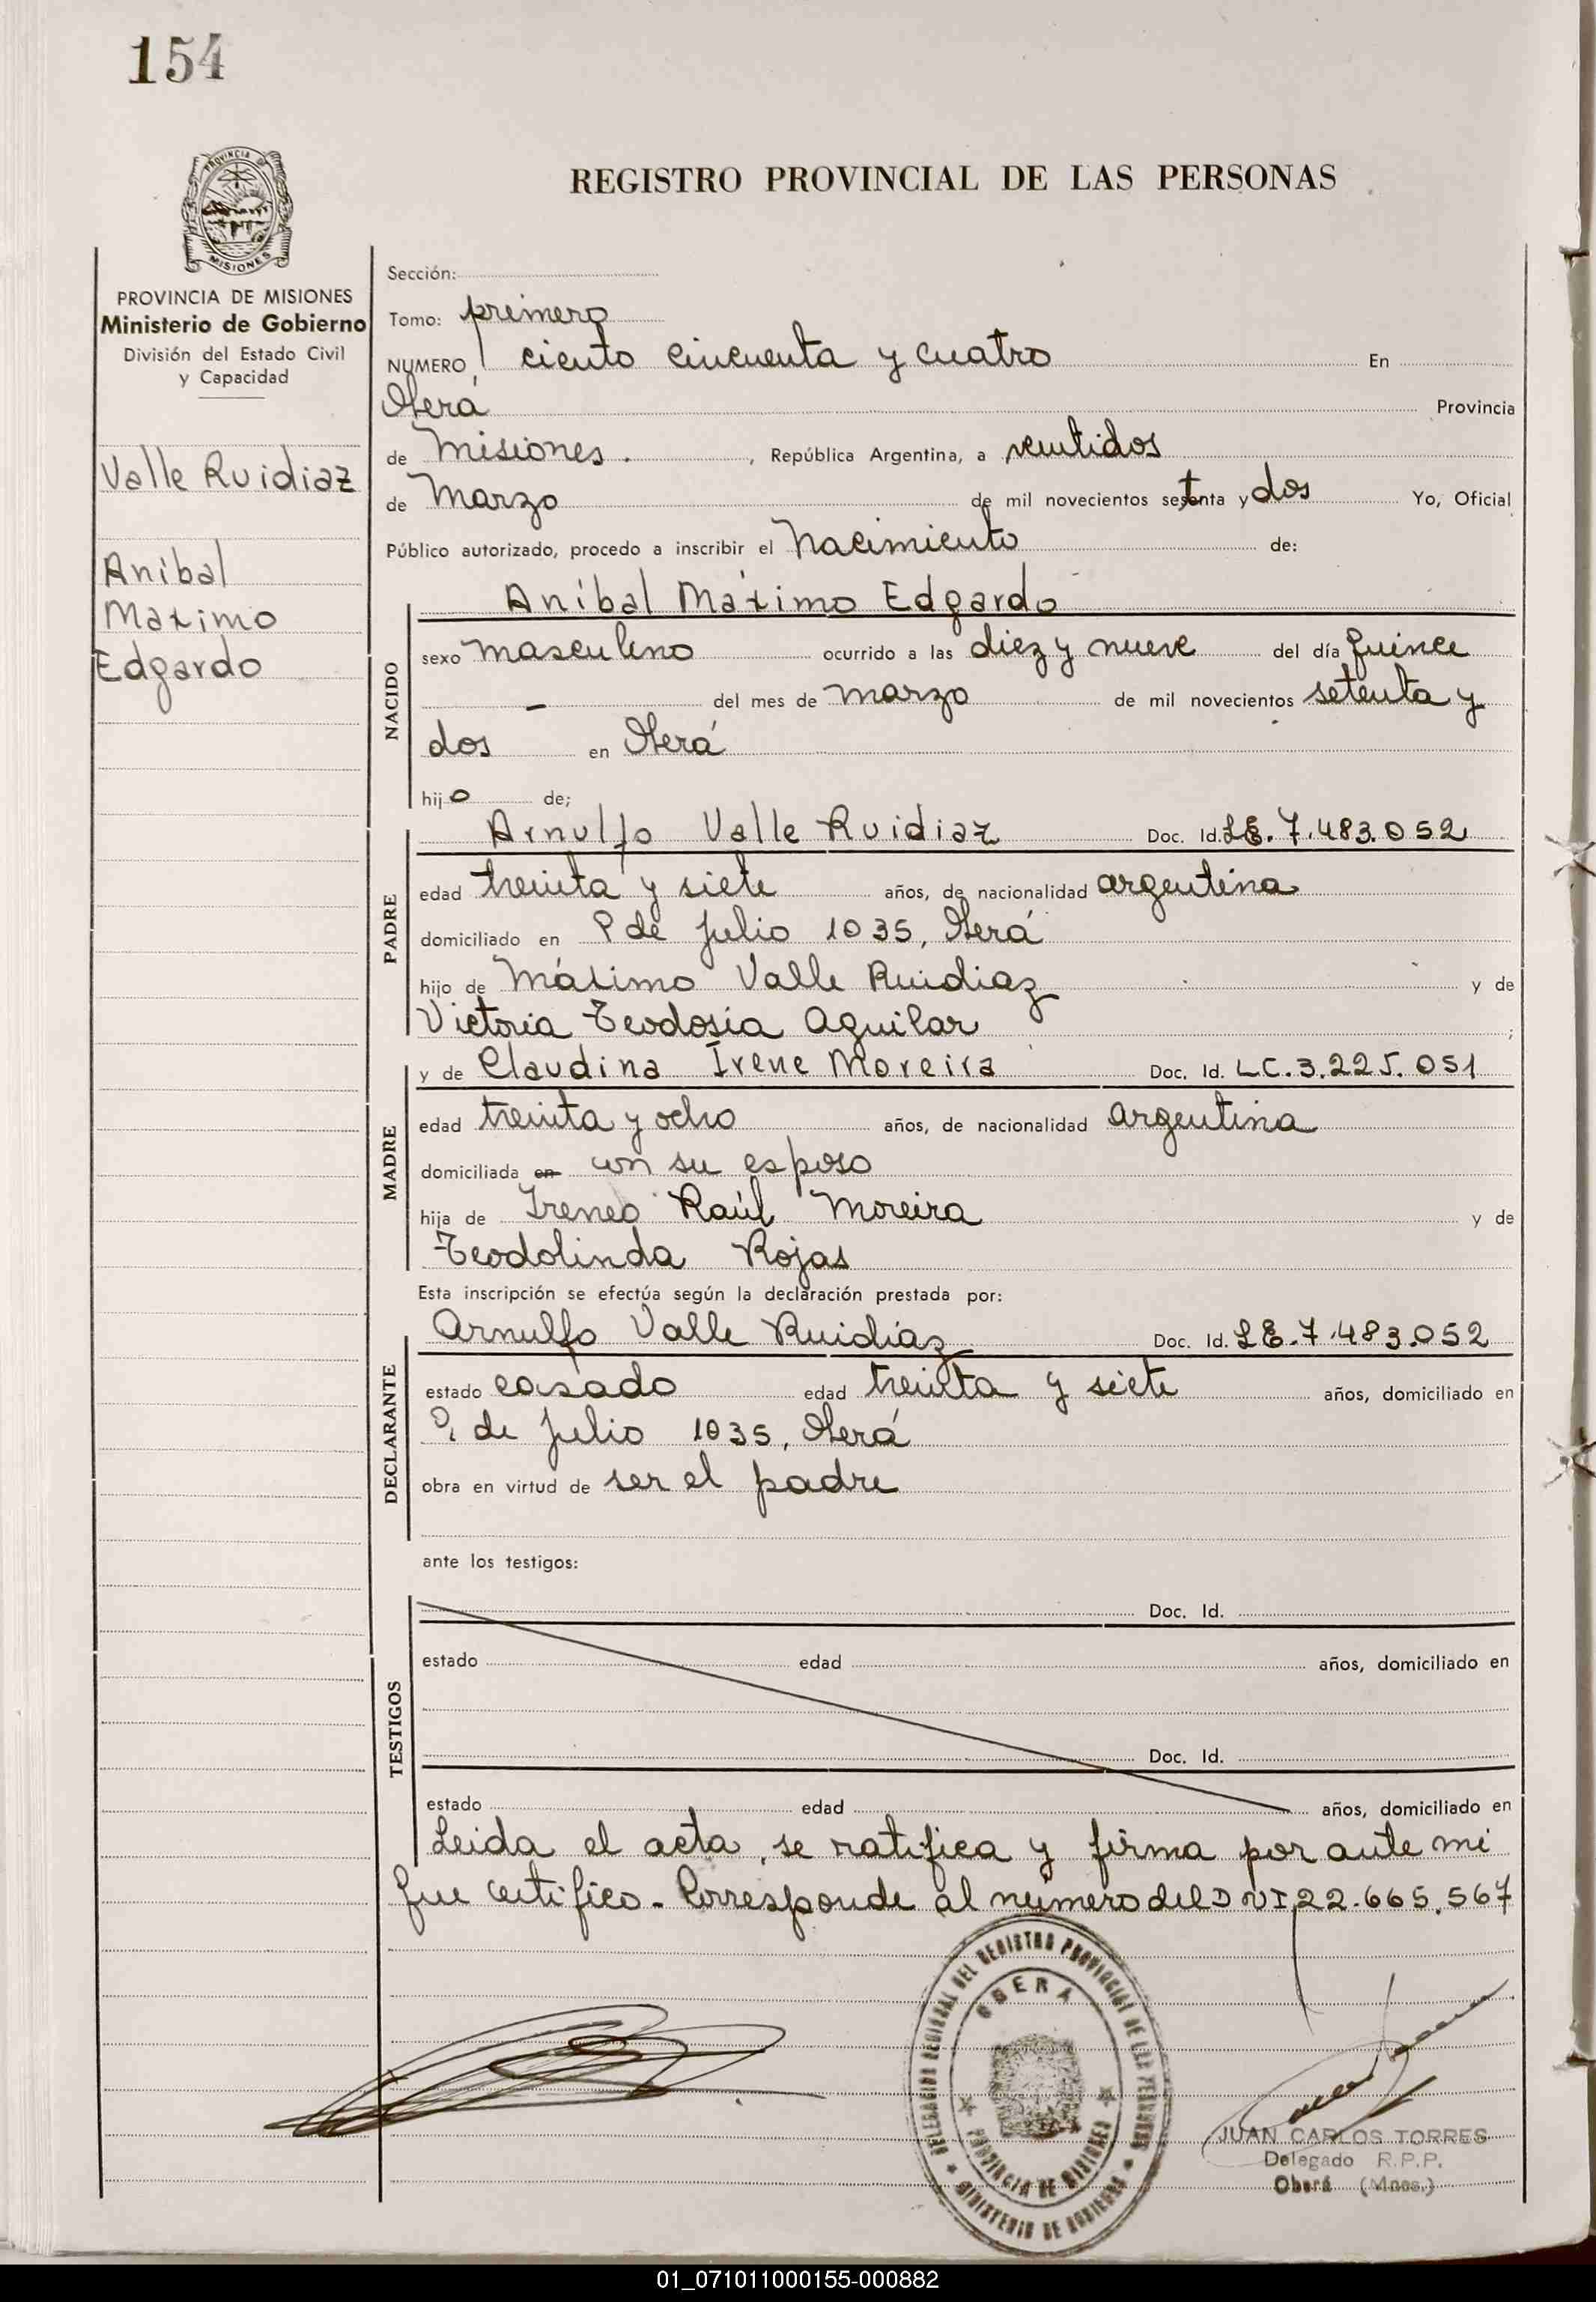 154
PROVINCIA DE
MISIONES
REGISTRO PROVINCIAL DE LAS PERSONAS
PROVINCIA DE MISIONES
Ministerio de Gobierno
División del Estado Civil
y Capacidad
Valle Ruidiaz
Aníbal
Maximo
Edgardo
Sección:
Tomo: primero
NUMERO ciento cincuenta y cuatro En
Oberá Provincia
de Misiones. , República Argentina, a veintidos
de Marzo de mil novecientos setenta y dos Yo, Oficial
Público autorizado, procedo a inscribir el Nacimiento de:
Aníbal Máximo Edgardo
NACIDO
sexo masculino ocurrido a las diez y nueve del día quince
— del mes de marzo de mil novecientos setenta y
dos en Oberá
hijo de;
Arnulfo Valle Ruidiaz Doc. Id. L.E. 7.483.052
PADRE
edad treinta y siete años, de nacionalidad argentina
domiciliado en 9 de Julio 1035, Oberá
hijo de Máximo Valle Ruidiaz y de
Victoria Teodosia Aguilar ;
y de Claudina Irene Moreira Doc. Id. L.C. 3.225.051
MADRE
edad treinta y ocho años, de nacionalidad argentina
domiciliada en con su esposo
hija de Ireneo Raúl Moreira y de
Teodolinda Rojas
Esta inscripción se efectúa según la declaración prestada por:
Arnulfo Valle Ruidíaz Doc. Id. L.E. 7.483.052
DECLARANTE
estado casado edad treinta y siete años, domiciliado en
9 de Julio 1035, Oberá
obra en virtud de ser el padre
ante los testigos:
Doc. Id.
TESTIGOS
estado edad años, domiciliado en
Doc. Id.
estado edad años, domiciliado en
Leida el acta, se ratifica y firma por ante mi
que certifico. Corresponde al número del DNI 22.665.567
DELEGACION REGIONAL DEL REGISTRO PROVINCIAL DE LAS PERSONAS
OBERA
PROVINCIA DE MISIONES
MINISTERIO DE GOBIERNO
JUAN CARLOS TORRES
Delegado R.P.P.
Oberá (Mnes.)
01_071011000155-000882